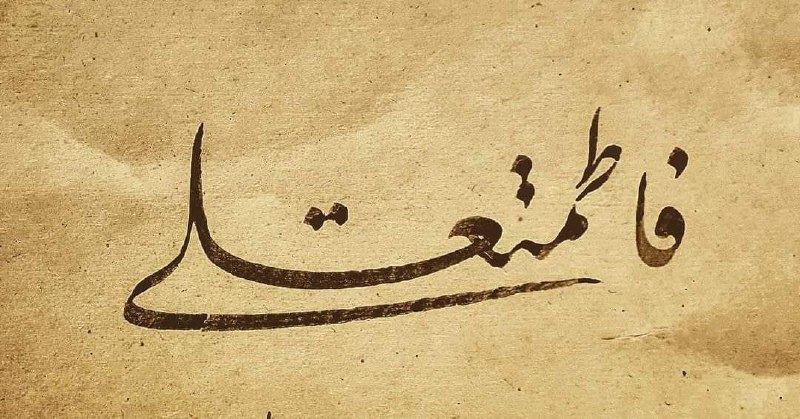 فاطمتعلی